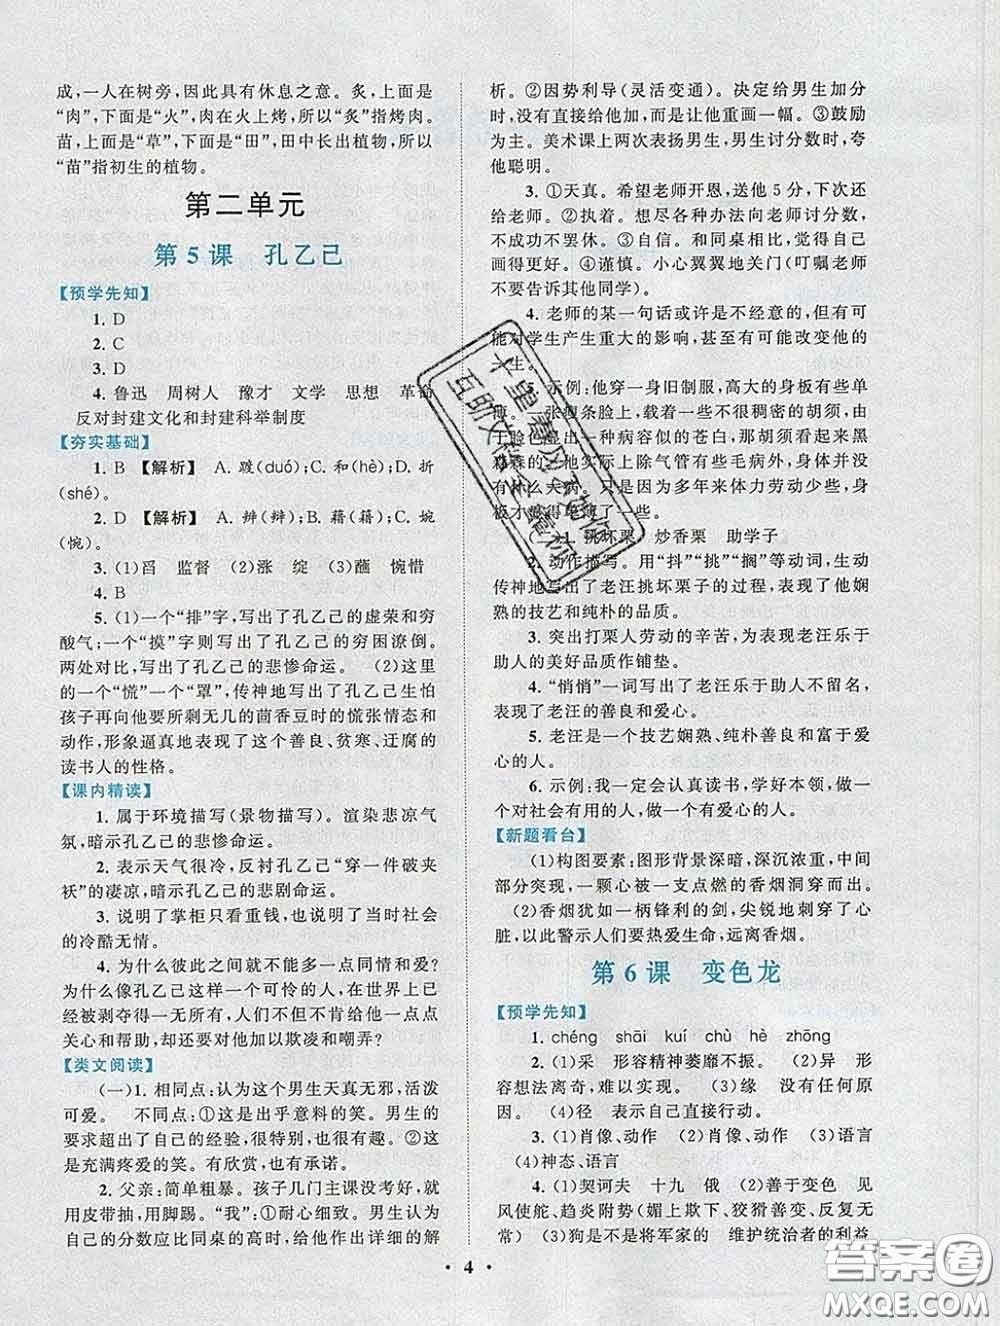 成，一人在树旁，因此具有休息之意。炙，上面是
“肉”，下面是“火”，肉在火上烤，所以“炙”指烤肉。
苗，上面是“草”，下面是“田”，田中长出植物，所以
“苗”指初生的植物。
第二单元
第 5 课　孔乙己
【预学先知】
1. D
2. C
3. D
4. 鲁迅　周树人　豫才　文学　思想　革命
反对封建文化和封建科举制度
【夯实基础】
1. B 【解析】 A. 跺(duó)；C. 和(hè)；D. 折
(shé)。
2. D 【解析】 A. 辨(辩)；B. 藉(籍)；C. 婉
(惋)。
3. (1)舀　监督　(2)涨　绽　(3)蘸　惋惜
4. B
5. (1)一个“排”字，写出了孔乙己的虚荣和穷
酸气；一个“摸”字则写出了孔乙己的穷困潦倒。
两处对比，写出了孔乙己的悲惨命运。　(2)这里
的一个“慌”一个“罩”，传神地写出了孔乙己生怕
孩子再向他要所剩无几的茴香豆时的慌张情态和
动作，形象逼真地表现了这个善良、贫寒、迂腐的
读书人的性格。
【课内精读】
1. 属于环境描写(景物描写)。渲染悲凉气
氛，暗示孔乙己的悲惨命运。
2. 表示天气很冷，反衬孔乙己“穿一件破夹
袄”的凄凉，暗示孔乙己的悲剧命运。
3. 说明了掌柜只看重钱，也说明了当时社会
的冷酷无情。
4. 为什么彼此之间就不能多一点同情和爱？
为什么像孔乙己这样一个可怜的人，在世界上已
被剥夺得一无所有，人们不但不肯给他一点点
关心和帮助，却还要对他加以欺凌和嘲弄？
【类文阅读】
(一)1. 相同点：认为这个男生天真无邪，活泼
可爱。　不同点：①这是出乎意料的笑。男生的
要求超出了自己的经验，很特别，也很有趣。②这
是充满疼爱的笑。有欣赏，也有承诺。
2. 父亲：简单粗暴。孩子几门主课没考好，就
用皮带抽，用脚踢。“我”：①耐心细致。男生认为
自己的分数应比同桌的高时，给他作出详细的解
析。②因势利导(灵活变通)。决定给男生加分
时，没有直接给他加，而是让他重画一幅。③鼓励
为主。美术课上两次表扬男生，男生讨分数时，夸
他聪明。
3. ①天真。希望老师开恩，送他 5 分，下次还
给老师。②执着。想尽各种办法向老师讨分数，
不成功不罢休。③自信。和同桌相比，觉得自己
画得更好。④谨慎。小心翼翼地关门(叮嘱老师
不要告诉其他同学)。
4. 老师的某一句话或许是不经意的，但有可
能对学生产生重大的影响，甚至有可能改变他的
一生。
5. 示例：他穿一身旧制服，高大的身板有些单
瘦条脸上，留着一些不很稠密的胡须，由
脸色显出一种病容似的苍白，那胡须就更黑
森森的。他实际上除气管有些毛病外，身体并没
有什么大病。只是因为多年来体力劳动少些，身
板才
1. 挑坏栗　炒香栗　助学子
2. 动作描写。用“抖”“挑”“搁”等动词，生动
传神地写出了老汪挑坏栗子的过程，表现了他娴
熟的技艺和纯朴的品质。
3. 突出打栗人劳动的辛苦，为表现老汪乐于
助人的美好品质作铺垫。
4. “悄悄”一词写出了老汪乐于助人不留名，
表现了老汪的善良和爱心。
5. 老汪是一个技艺娴熟、纯朴善良和富于爱
心的人。
6. 示例：我一定会认真读书，学好本领，做一
个对社会有用的人，做一个有爱心的人。
【新题看台】
(1)构图要素：图形背景深暗，深沉浓重，中间
部分突现，一颗心被一支点燃的香烟洞穿而出。
(2)香烟犹如一柄锋利的剑，尖锐地刺穿了心
脏，以此警示人们要热爱生命，远离香烟。
第 6 课　变色龙
【预学先知】
1. chéng　shāi　kuí　chù　hè　zhōng
2. (1)采　形容精神萎靡不振。　(2)异　形
容想法离奇，难以实现。　(3)缘　没有任何原
因。　(4)径　表示自己直接行动。
3. (1)肖像、动作　(2)肖像、动作　(3)语言
(4)神态、语言
4. (1)契诃夫　十九　俄　(2)善于变色　见
风使舵、趋炎附势(媚上欺下、狡猾善变、反复无
常)　(3)狗是不是将军家的　维护统治者的利益
• 4 •
答案圈
MXQE.COM